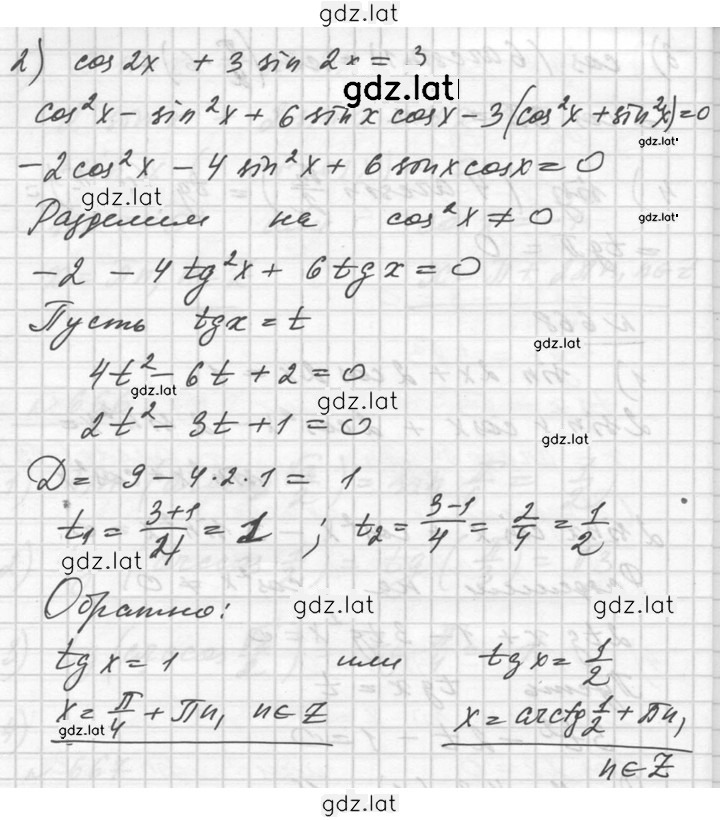 gdz.lat
2) cos 2x + 3 sin 2x = 3
gdz.lat
cos²x − sin²x + 6 sin x cos x − 3(cos²x + sin²x) = 0
gdz.lat
−2cos²x − 4 sin²x + 6 sin x cos x = 0
gdz.lat
Разделим на cos²x ≠ 0
gdz.lat
−2 − 4 tg²x + 6 tg x = 0
Пусть tg x = t
gdz.lat
4t² − 6t + 2 = 0
gdz.lat
gdz.lat
2t² − 3t + 1 = 0
gdz.lat
D = 9 − 4·2·1 = 1
t₁ = (3+1)/4 = 1 ; t₂ = (3−1)/4 = 2/4 = 1/2
gdz.lat
Обратно:
gdz.lat
gdz.lat
tg x = 1 или tg x = 1/2
x = π/4 + πn, n ∈ Z x = arctg 1/2 + πn,
gdz.lat
n ∈ Z
gdz.lat